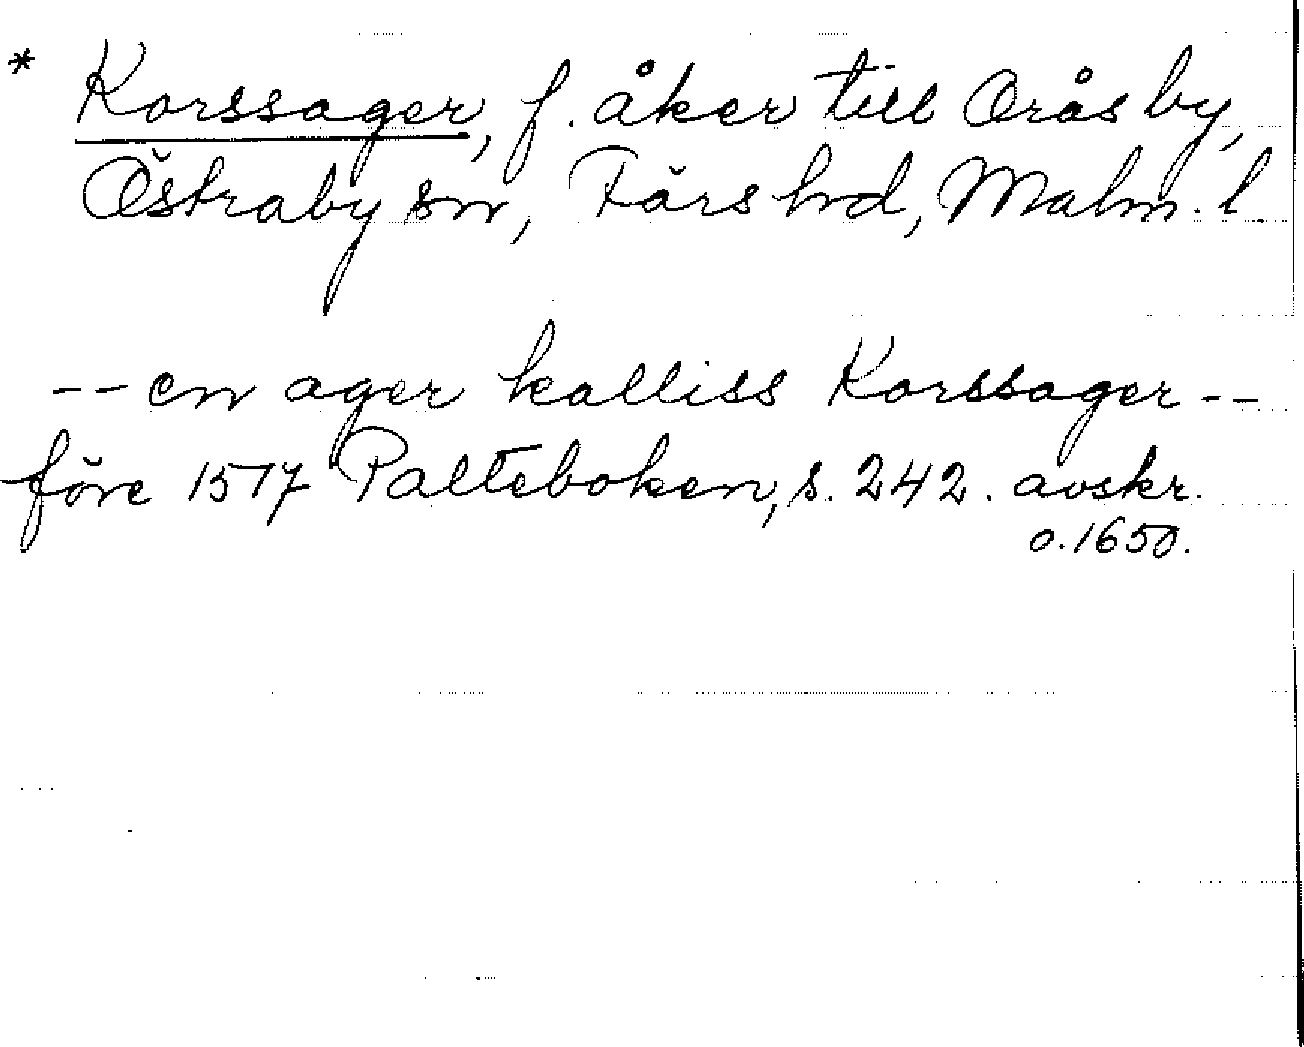 * Korssager, f. åker till Orås by,
Östraby sn, Färs hd, Malm. l.
-- en ager kalliss Korssager --
före 1517 Palteboken, s. 242. avskr.
o. 1650.